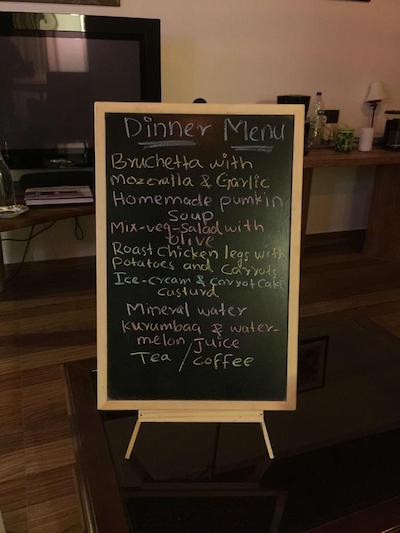 Dinner Menu
Bruchetta with
Mozcralla & Garlic
Homemade pumkin
Soup
Mix-veg-salad with
olive
Roast chicken legs with
Potatoes and carrots
Ice-cream & carrot cake
custurd
Mineral water
Kurumbaa & water-
melon juice
Tea / coffee